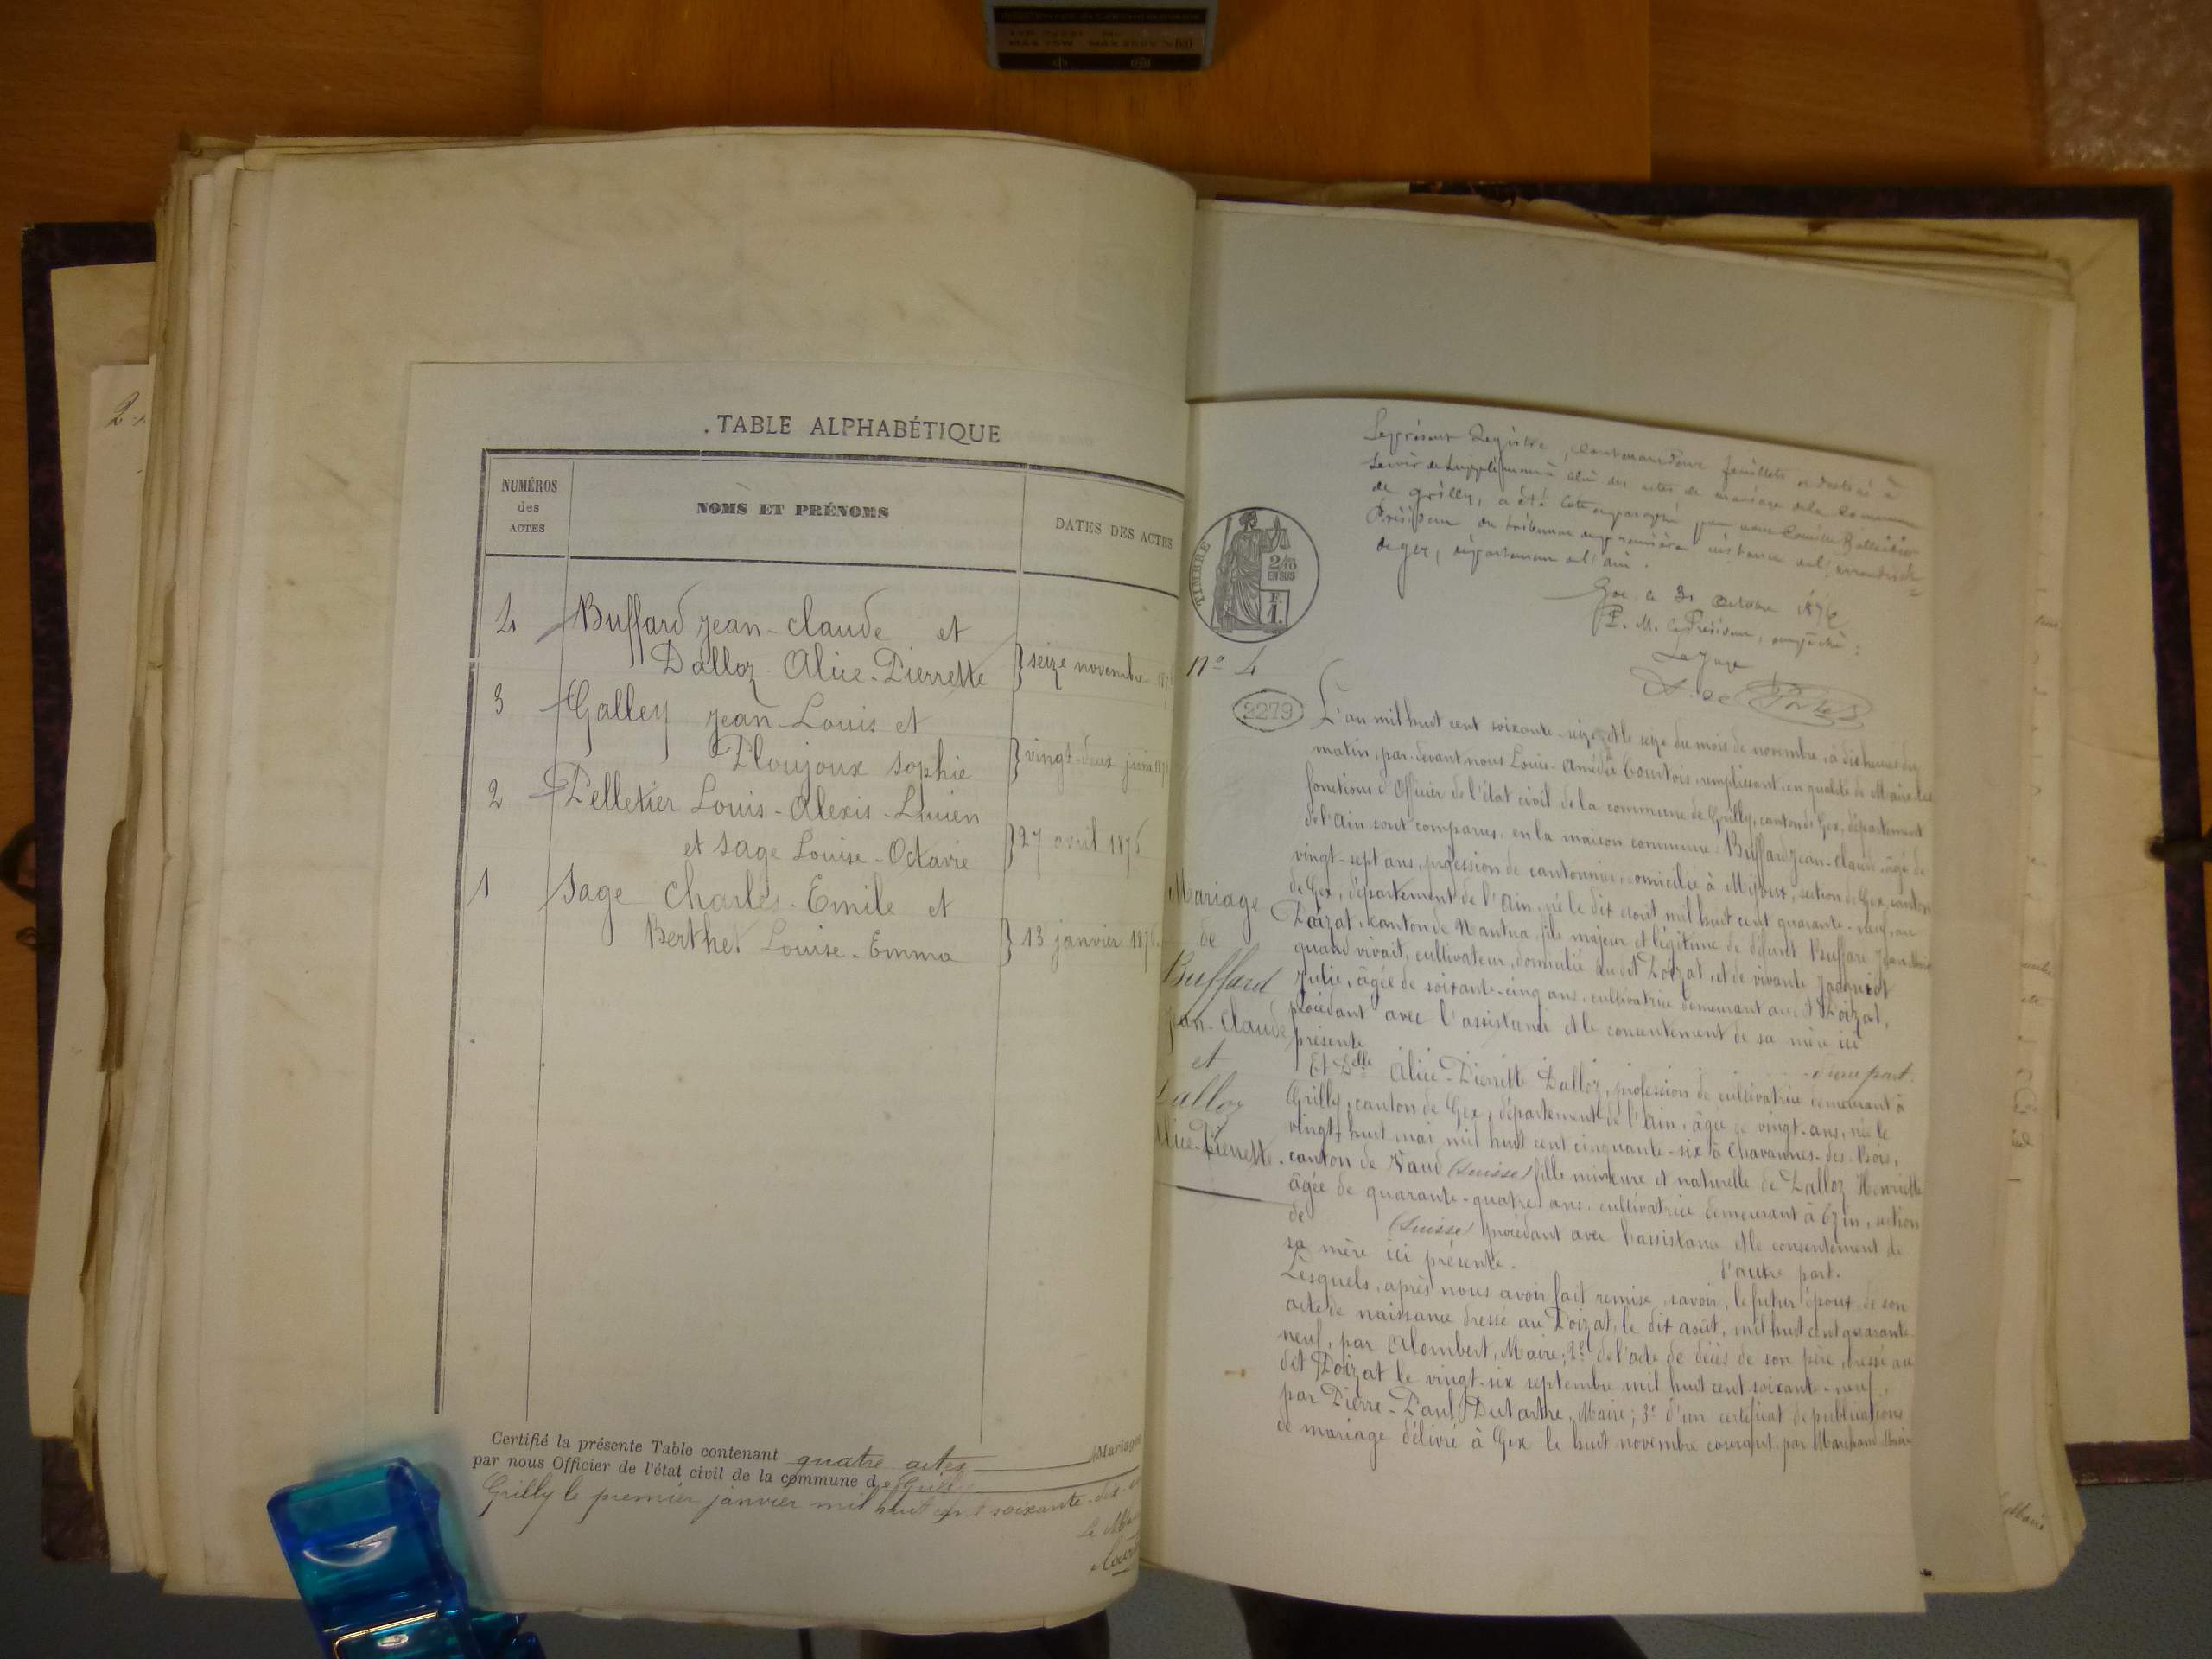 TABLE ALPHABÉTIQUE
NUMÉROS
des
ACTES
NOMS ET PRÉNOMS
DATES DES ACTES
4 Buffard Jean-Claude et
Dalloz Alice-Pierrette } seize novembre
3 Galley Jean-Louis et
Ploujoux Sophie } vingt-deux juin
2 Pelletier Louis-Alexis-Lucien
et Sage Louise-Octavie } 27 avril 1876
1 Sage Charles-Emile et
Berthet Louise-Emma } 13 janvier 1876
Certifié la présente Table contenant quatre actes Mariages
par nous Officier de l'état civil de la commune de Grilly
Grilly le premier janvier mil huit cent soixante-dix
Le présent Registre, feuillets destiné à
servir de supplément à celui des actes de mariage de la Commune
de Grilly, a été coté et paraphé par nous
Président du tribunal de première instance de l'arrondisse
de Gex, département de l'Ain.
Gex le 31 Octobre 1876
P. M. le Président, empêché :
Le Juge
TIMBRE
2/10
EN SUS
F.
1.
N° 4
2279
Mariage
de
Buffard
Jean-Claude
et
Dalloz
Alice-Pierrette.
L'an mil huit cent soixante-seize, et le seize du mois de novembre, à dix heures du
matin, par-devant nous Louis-Amédée Courtois, remplissant, en qualité de Maire les
fonctions d'Officier de l'état civil de la commune de Grilly, canton de Gex, département
de l'Ain sont comparus, en la maison commune : Buffard Jean-Claude âgé de
vingt-sept ans, profession de cantonnier, domicilié à Mijoux, section de Gex, canton
de Gex, département de l'Ain, né le dix août mil huit cent quarante-neuf, au
Poizat, canton de Nantua, fils majeur et légitime de défunt Buffard Jean
quand vivait, cultivateur, domicilié au dit Poizat, et de vivante Jacquiot
Julie, âgée de soixante-cinq ans, cultivatrice demeurant au dit Poizat,
procédant avec l'assistance et le consentement de sa mère ici
présente d'une part.
Et Delle Alice-Pierrette Dalloz, profession de cultivatrice demeurant à
Grilly, canton de Gex, département de l'Ain, âgée de vingt-ans, née le
vingt-huit mai mil huit cent cinquante-six à Chavannes-des-Bois,
canton de Vaud (Suisse) fille mineure et naturelle de Dalloz Henriette
âgée de quarante-quatre ans, cultivatrice demeurant à , section
de (Suisse) procédant avec l'assistance et le consentement de
sa mère ici présente. d'autre part.
Lesquels, après nous avoir fait remise, savoir, le futur époux, de son
acte de naissance dressé au Poizat, le dix août, mil huit cent quarante-
neuf, par Alombert, Maire; 2° de l'acte de décès de son père, dressé au
dit Poizat le vingt-six septembre mil huit cent soixante-neuf,
par Pierre-Paul Dutarthe, Maire; 3° d'un certificat de publications
de mariage délivré à Gex le huit novembre courant, par Marchand Maire